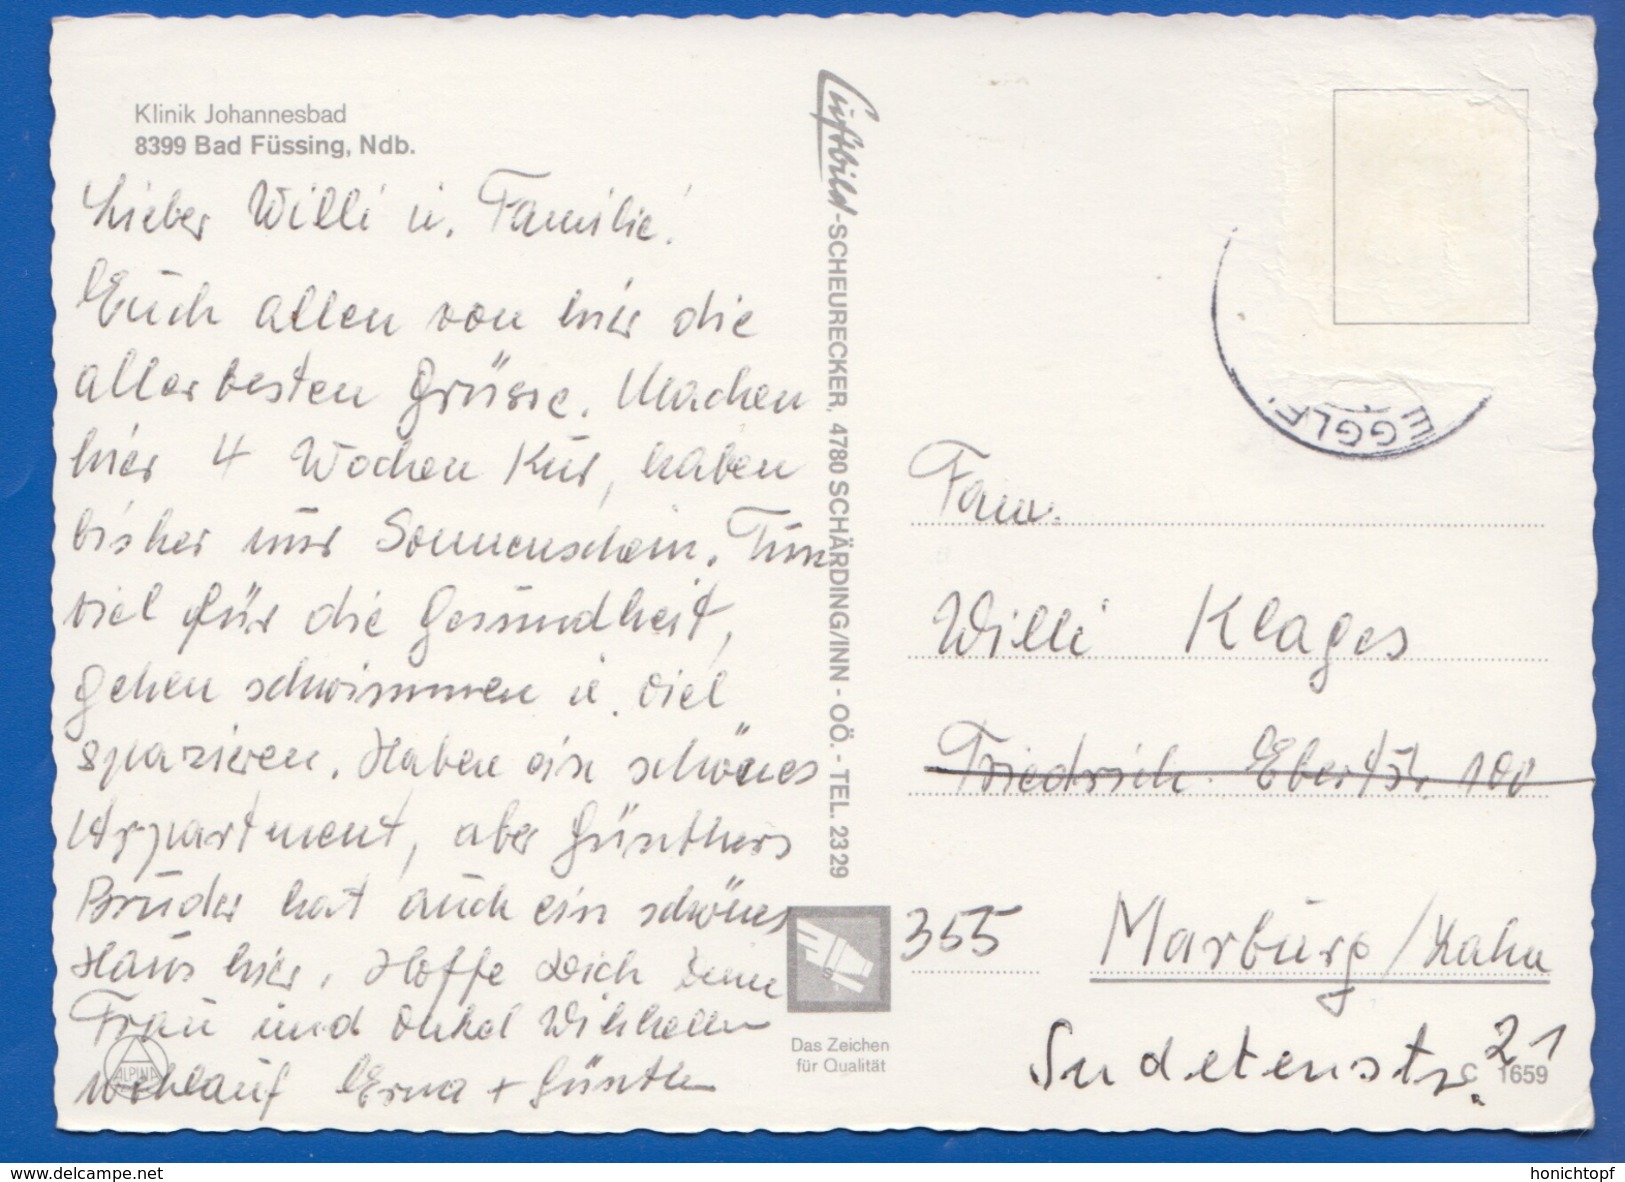 Klinik Johannesbad
8399 Bad Füssing, Ndb.
Lieber Willi u. Familie!
Euch allen von hier die
allerbesten Grüsse. Machen
hier 4 Wochen Kur, haben
bisher nur Sonnenschein. Tun
viel für die Gesundheit,
gehen schwimmen u. viel
spazieren. Haben ein schönes
Appartment, aber Günthers
Bruder hat auch ein schönes
Haus hier. Hoffe Dich Deine
Frau und Onkel Wilhelm
wohlauf Erna + Günther
ALPINA
Luftbild-SCHEURECKER, 4780 SCHÄRDING/INN - OÖ. - TEL. 2329
Das Zeichen
für Qualität
EGGLF
Fam.
Willi Klages
Friedrich-Ebertstr. 100
355 Marburg/Lahn
Sudetenstr. 21
C 1659
www.delcampe.net
honichtopf